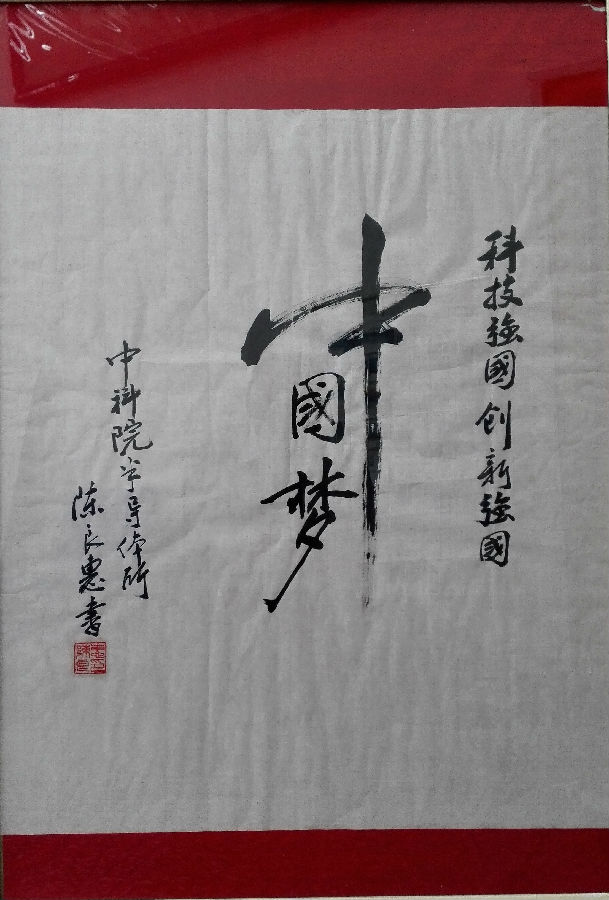 科技強國创新強國
中國梦
中科院半导体所
陈良惠書